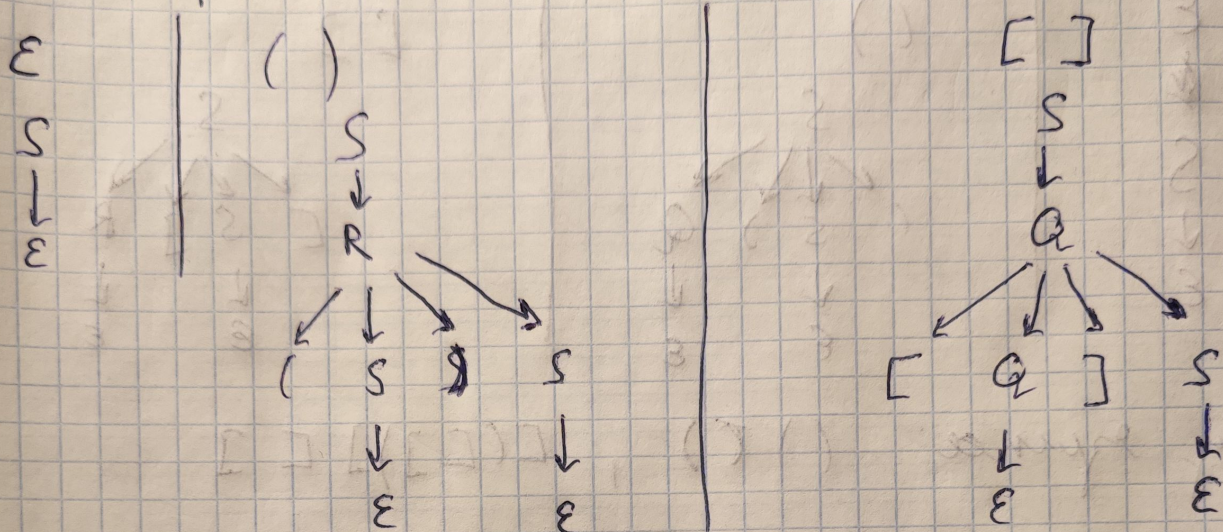 ε
S
ε
( )
S
R
( S ) S
ε ε
[ ]
S
Q
[ Q ] S
ε ε